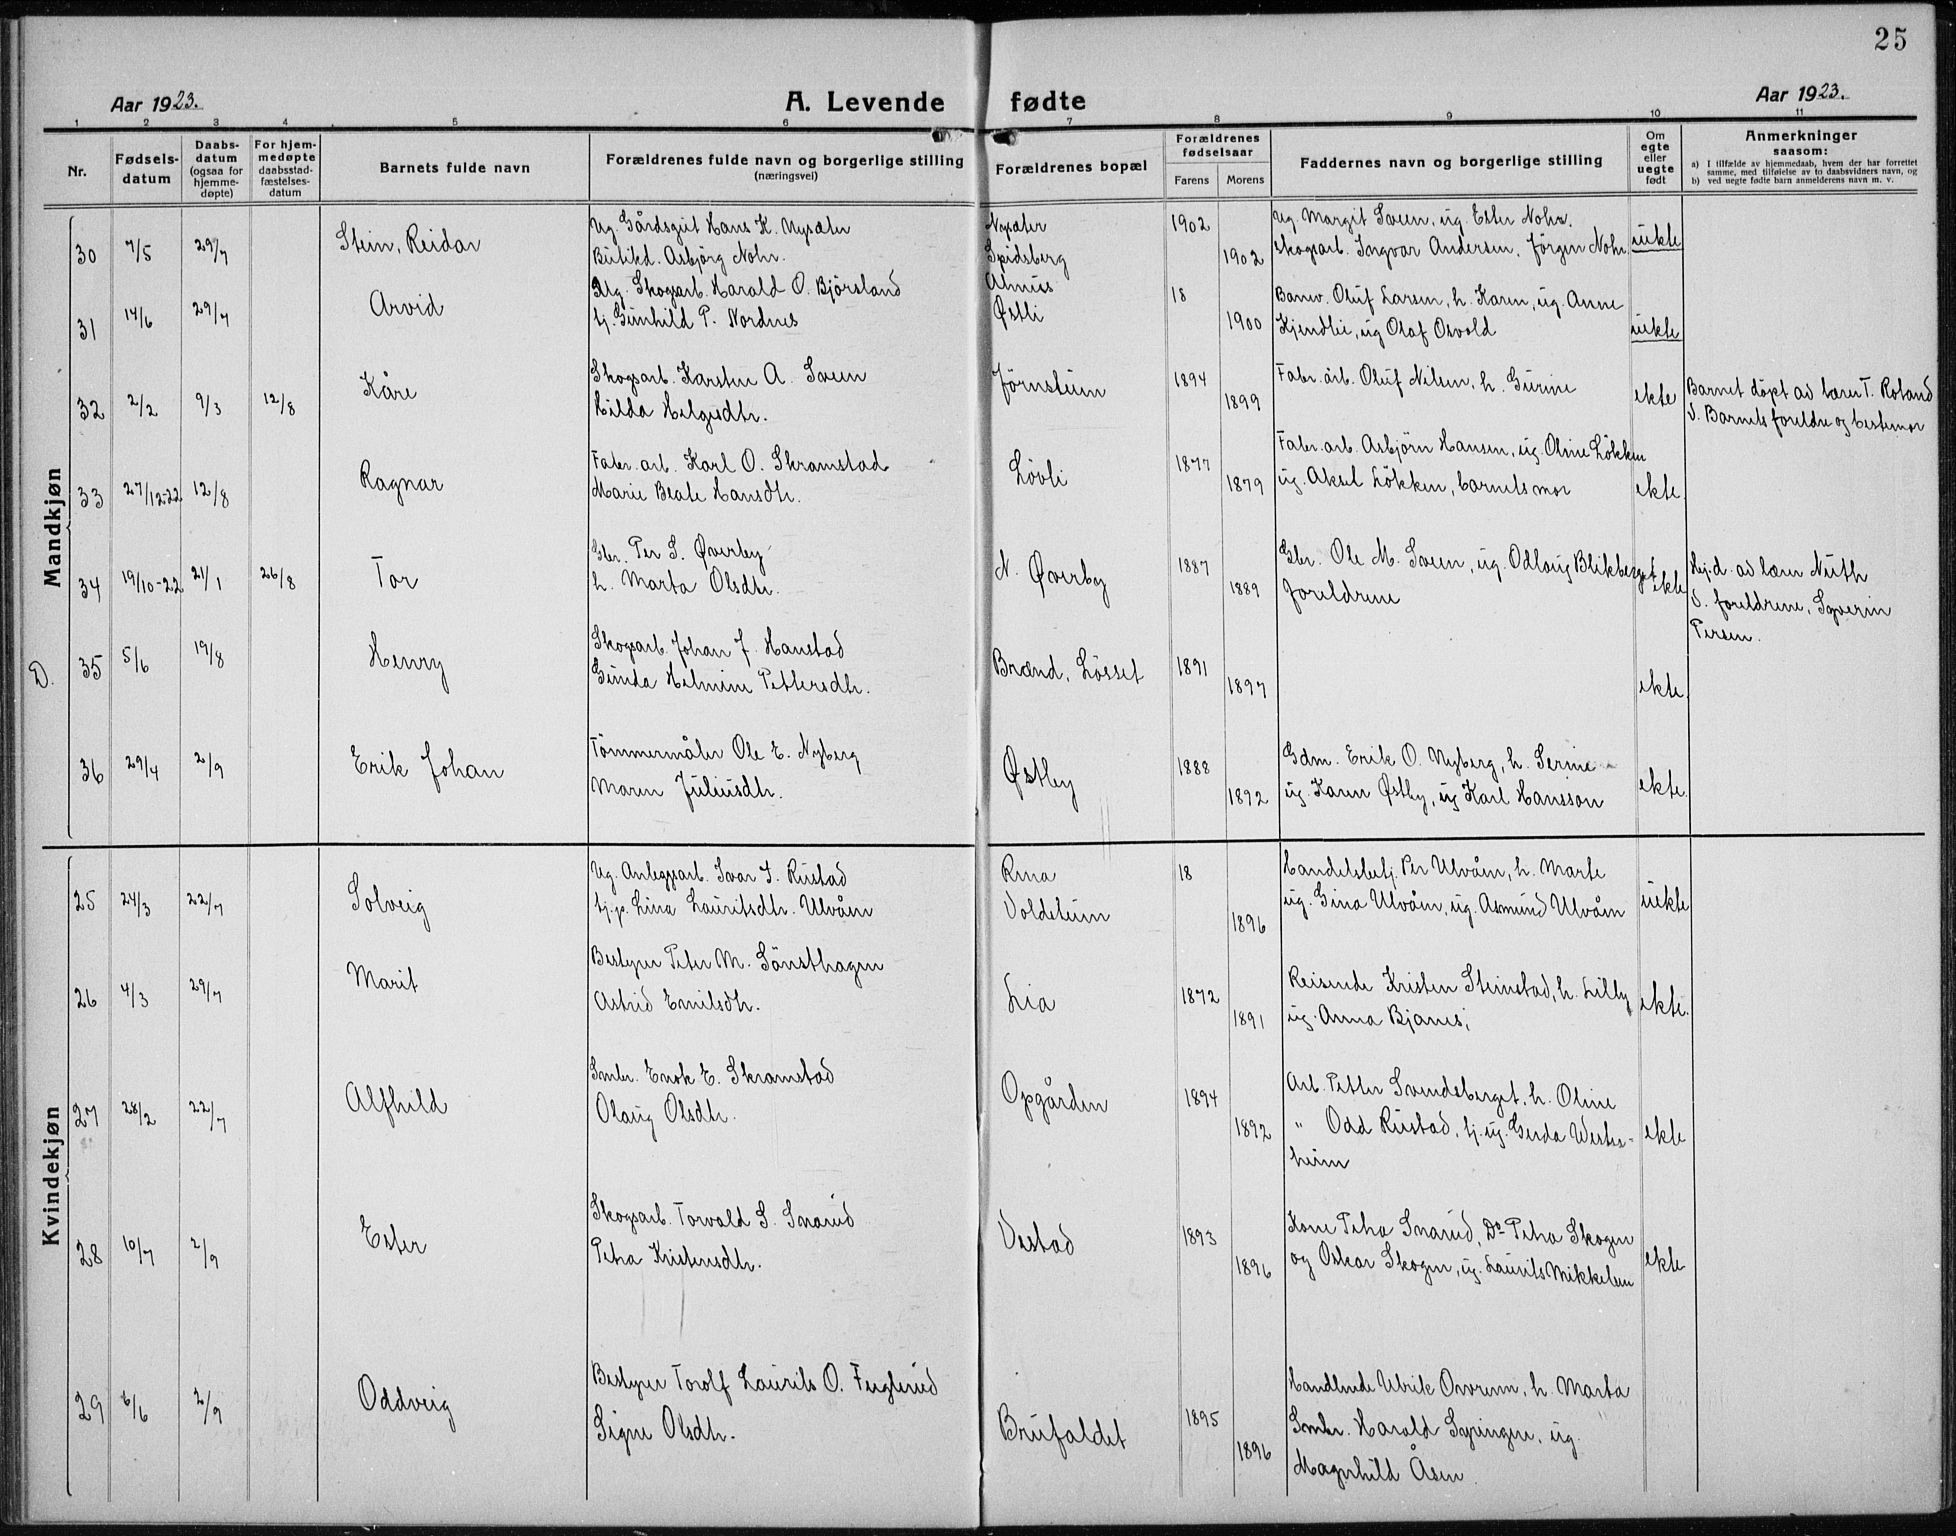 25
Aar 1923.
A. Levende fødte
Aar 1923.
1 2 3 4 5 6 7 8 9 10 11
Nr.
Fødsels-
datum
Daabs-
datum
(ogsaa for
hjemme-
døpte)
For hjem-
medøpte
daabsstad-
fæstelses-
datum
Barnets fulde navn
Forældrenes fulde navn og borgerlige stilling
(næringsvei)
Forældrenes bopæl
Forældrenes
fødselsaar
Farens Morens
Faddernes navn og borgerlige stilling
Om
egte
eller
uegte
født
Anmerkninger
saasom:
a) I tilfælde av hjemmedaab, hvem der har forrettet
samme, med tilføielse av to daabsvidners navn, og
b) ved uegte fødte barn anmelderens navn m. v.
Mandkjøn
30 7/5 29/7 Stein, Reidar
Ug. Gårdsgut Hans K. Nysæter Nysæter 1902 Ug. Margit Sveen, ug. Ester Nohr.
Butikd. Asbjørg Nohr. Spidsberg 1902 Skogsarb. Ingvar Andersen, Jørgen Nohr uekte
31 14/6 29/7 Arvid
Ug. Skogsarb. Harald O. Bjørsland Almus 18 Banv. Oluf Larsen, h. Karen, ug. Anne
tj. Gunhild P. Nordnes Østli 1900 Kjendlie, ug Olaf Osvold uekte
32 2/2 9/3 12/8 Kåre
Skogsarb. Karsten A. Sveen Jørnstuen 1894 Fabr. arb. Oluf Nilsen, h. Gurine
Hilda Helgesdtr. 1899 ekte Barnet døpt av lærer T. Roland
V. Barnets foreldre og bestemor
33 27/12-22 12/8 Ragnar
Fabr. arb. Karl O. Skramstad Løvli 1877 Fabr. arb. Asbjørn Hansen, ug. Oline Løkken
Marie Beate Hansdtr. 1879 ug. Aksel Løkken, barnets mor ekte
34 19/10-22 21/1 26/8 Tor
Gbr. Per S. Øverby N. Øverby 1887 Gbr. Ole M. Sveen, ug. Odlaug Blikberget
h. Marta Olsdtr. 1889 foreldrene ekte Hj.d. av lærer Nuth
V. foreldrene, Syverin
Persen.
D. 35 5/6 19/8 Henry
Skogsarb. Johan J. Hanstad Brænd, Løsset 1891
Gunda Helmine Pettersdtr. 1897 ekte.
36 29/4 2/9 Erik Johan
Tømmermåler Ole E. Nyberg Østby 1888 Gdm. Erik O. Nyberg, h. Serine
Maren Juliusdtr. 1892 ug. Karen Østby, ug Karl Hansson ekte.
Kvindekjøn
25 24/3 22/7 Solveig
Ug. Anleggsarb. Ivar S. Rustad Rena 18 Handelsbetj. Per Ulvåm, h. Marte
tj.p. Lina Lauritsdtr. Ulvåm Voldstuen 1896 ug. Gina Ulvåm, ug. Asmund Ulvåm uekte
26 4/3 29/7 Marit
Bestyrer Peter M. Sønsthagen Lia 1872 Reisende Kristen Steinstad, h. Lilly
Astrid Emilsdtr. 1891 ug. Anna Bjanes; ekte.
27 28/2 22/7 Alfhild
Smbr. Enok E. Skramstad Opgården 1894 Arb. Petter Svendsberget, h. Oline
Olaug Olsdtr. 1892 " Odd Rustad, tj. ug. Gerda Wester-
heim ekte
28 10/7 2/9 Ester
Skogsarb. Torvald S. Snarud Vestad 1893 Kone Petra Snarud, Do Petra Skogen
Petra Kristensdtr. 1896 og Oskar Skogen, ug. Laurits Mikkelsen ekte
29 6/6 2/9 Oddveig
Bestyrer Torolf Laurits O. Fuglerud Brufaldet 1895 Handlende Ulrik Ovrenn, h. Marta
Signe Olsdtr. 1896 Smbr. Harold Syringen, ug.
Magnhild Åsen